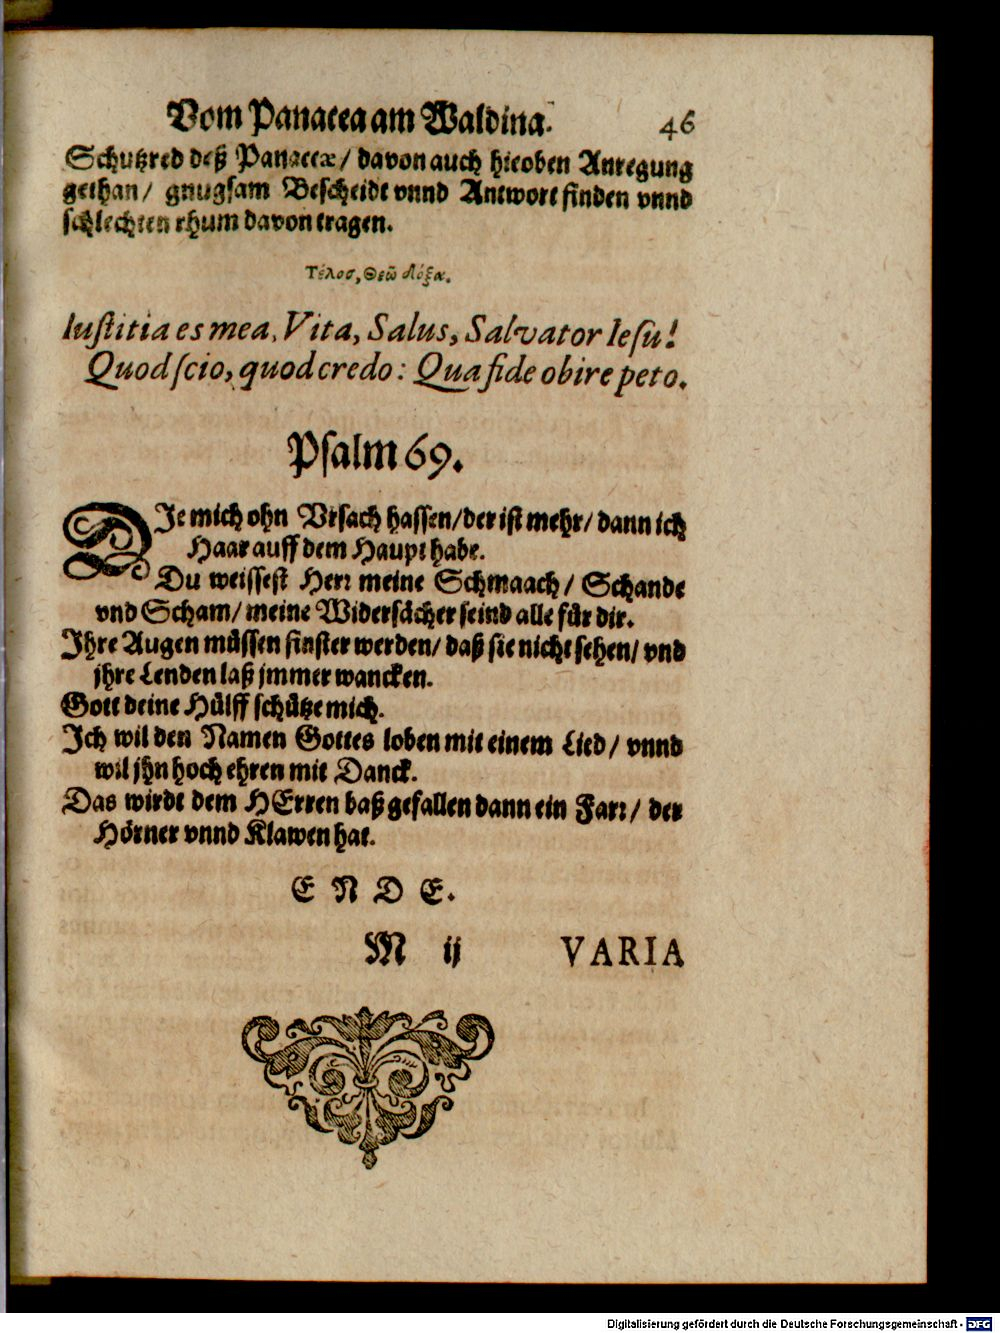 Vom Panacea am Waldina. 46
Schutzred deß Panaceæ / davon auch hieoben Anregung
gethan / gnugsam Bescheidt vnnd Antwort finden vnnd
schlechten rhum davon tragen.
Τέλοσ, Θεῶ Δόξα.
Iustitia es mea, Vita, Salus, Salvator Iesu!
Quod scio, quod credo: Qua fide obire peto.
Psalm 69.
DJe mich ohn Vrsach hassen / der ist mehr / dann ich
Haar auff dem Haupt habe.
Du weissest Herr meine Schmaach / Schande
vnd Scham / meine Widersächer seind alle für dir.
Jhre Augen müssen finster werden / daß sie nicht sehen / vnd
jhre Lenden laß jmmer wancken.
Gott deine Hülff schütze mich.
Jch wil den Namen Gottes loben mit einem Lied / vnnd
wil jhn hoch ehren mit Danck.
Das wirdt dem HErren baß gefallen dann ein Farr / der
Hörner vnnd Klawen hat.
E N D E.
M ij VARIA
Digitalisierung gefördert durch die Deutsche Forschungsgemeinschaft - DFG